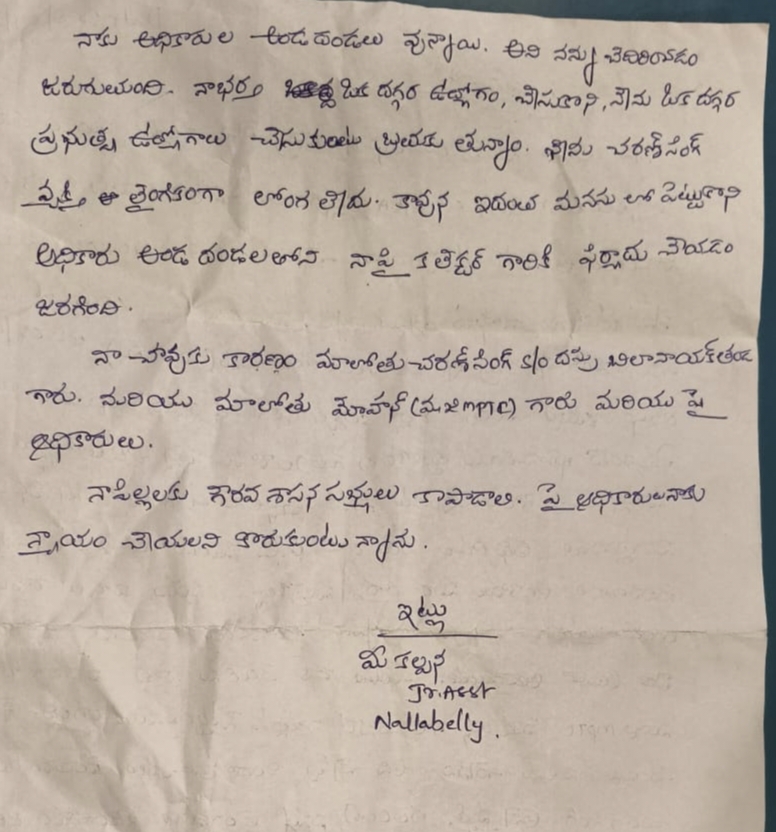 నాకు అధికారుల అండదండలు వున్నాయి. అని నన్ను బెదిరించడం
జరుగుతుంది. నాభర్త ఒక దగ్గర ఉద్యోగం, చేసుకొని, నేను ఒక దగ్గర
ప్రభుత్వ ఉద్యోగాలు చేసుకుంటు బ్రతుకు తున్నాం. చరణ్ సింగ్
వ్యక్తి ఆ లైంగికంగా లోంగ లేదు. కావున ఇదంత మనసు లో పెట్టుకొని
అధికారు అండ దండలతోని నాపై కలెక్టర్ గారికి ఫిర్యాదు చేయడం
జరిగింది.
నా చావుకు కారణం మాలోతు చరణ్ సింగ్ S/o దస్రు బిలానాయక్ తండ
గారు. మరియు మాలోతు మోహన్ గారు మరియు పై
అధికారులు.
నాపిల్లలకు గౌరవ శాసన సభ్యులు కాపాడాలి. పై అధికారులు నాకు
న్యాయం చేయలని కోరుకుంటు న్నాను.
ఇట్లు
మీ కల్పన
Jr. Asst
Nallabelly.